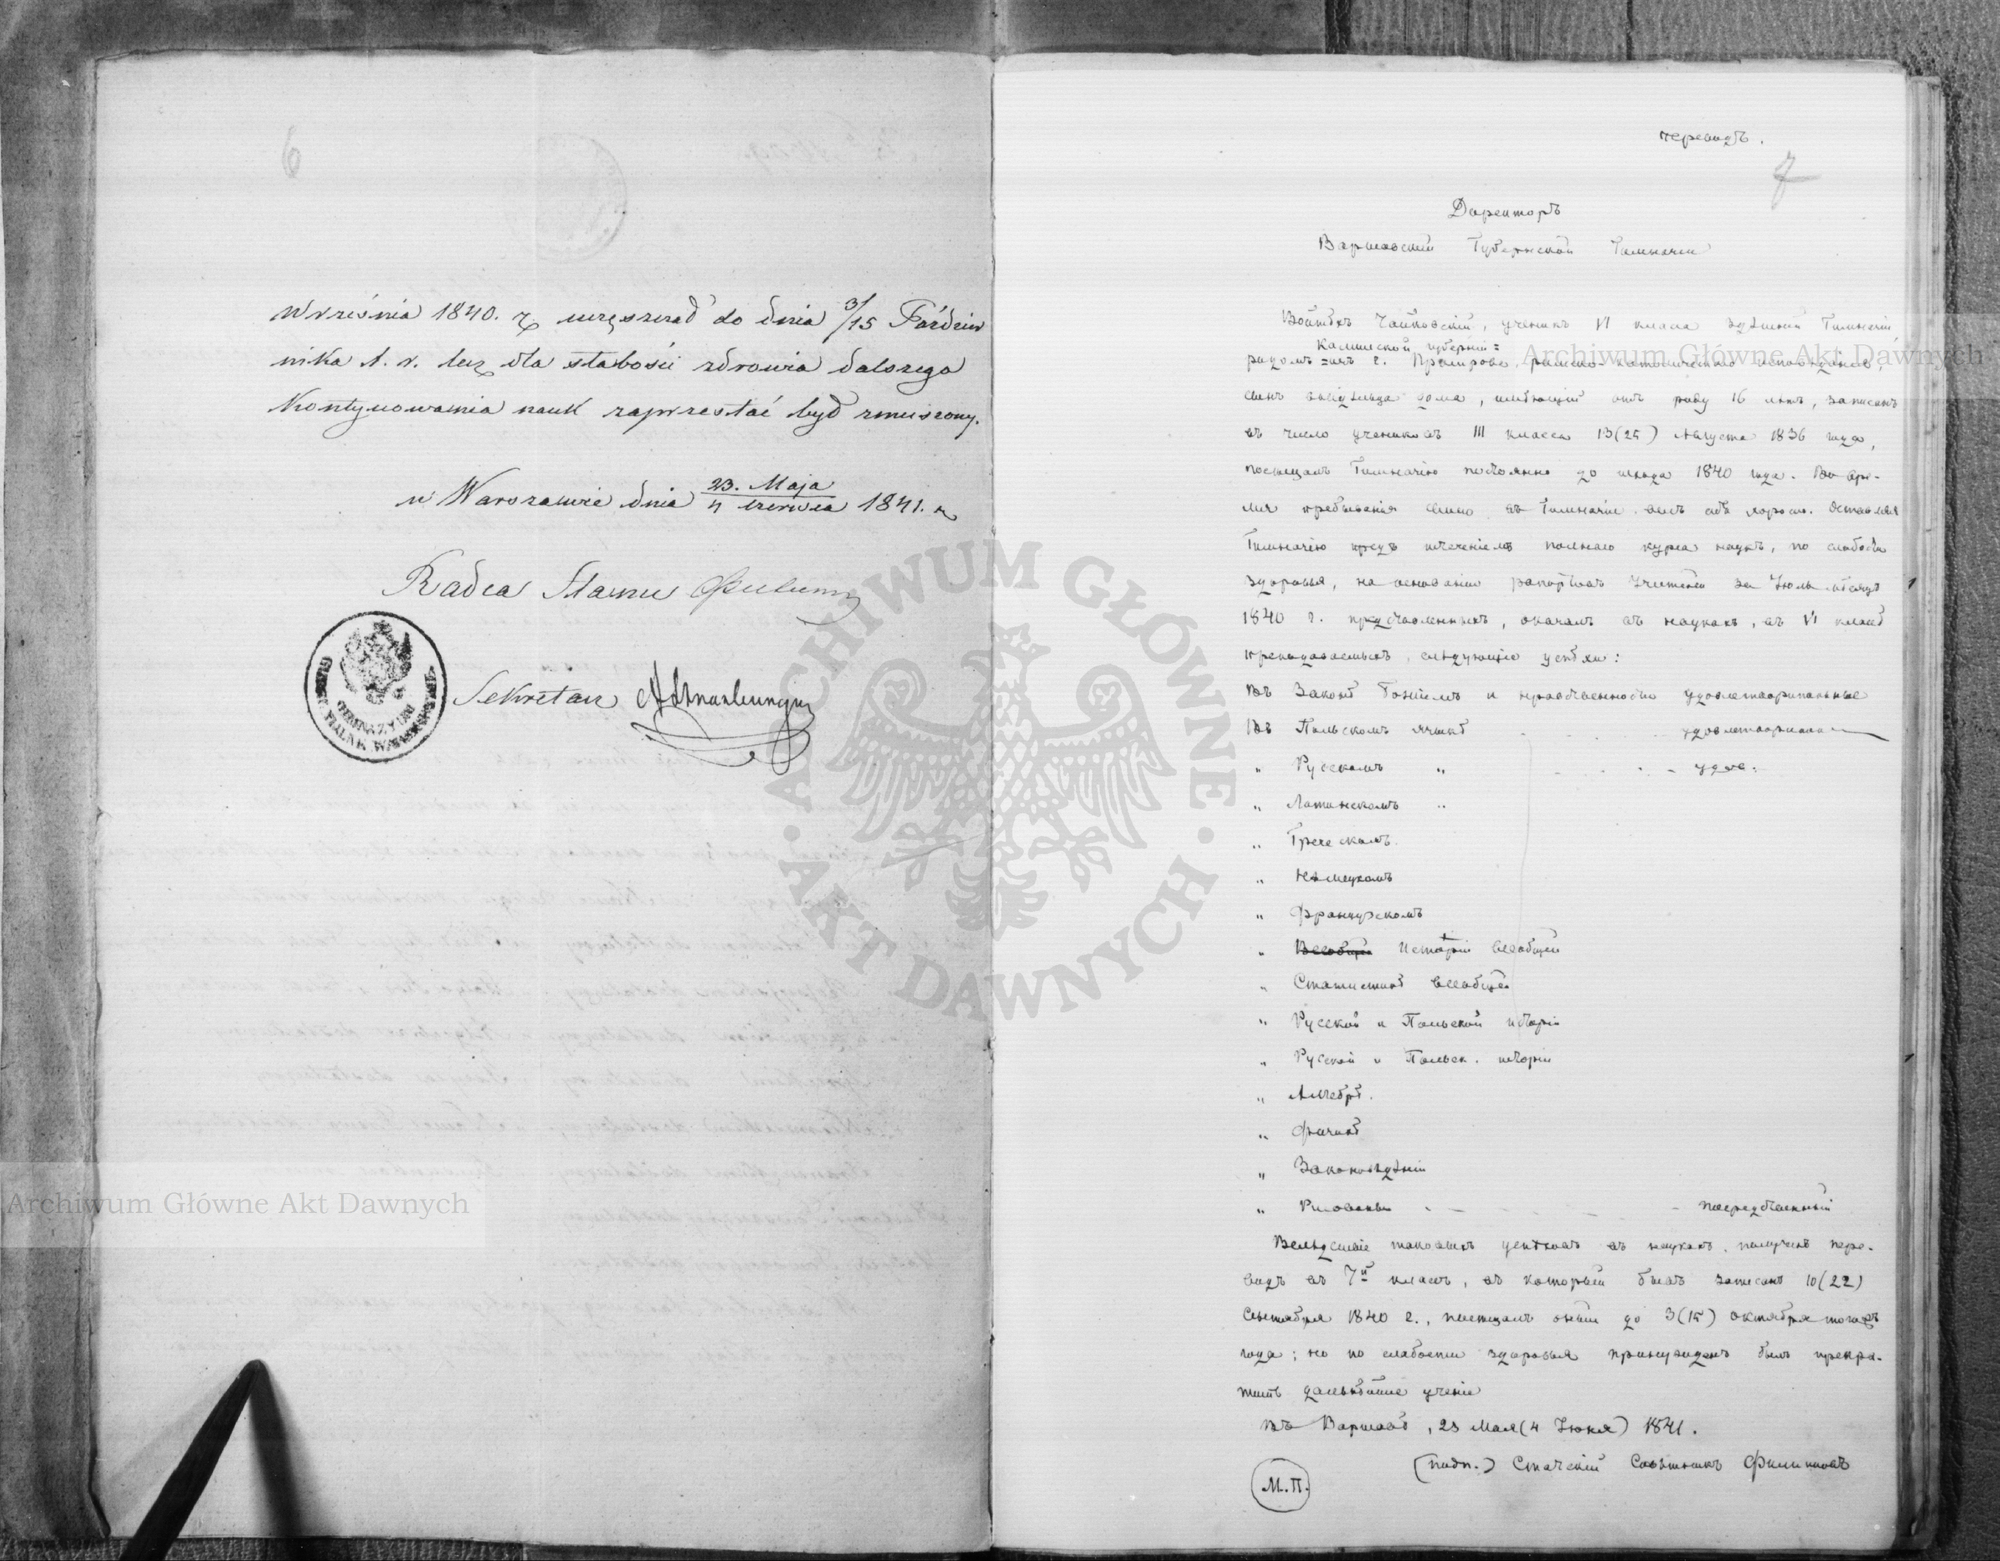 6
Września 1840. r. uczęszczał do dnia 3/15 Paździer
nika t. r. lecz dla słabości zdrowia dalszego
kontynuowania nauk zaprzestać był zmuszony.
w Warszawie dnia 23. Maja / 4 Czerwca 1841. r.
Radca Stanu
Sekretarz
GIMNAZYUM
Archiwum Główne Akt Dawnych
ARCHIWUM GŁÓWNE · AKT DAWNYCH ·
переводъ.
7
Директоръ
Варшавской Губернской Гимназіи
Войтѣхъ Чайковскій, ученикъ VI класса здѣшней Гимназіи
Калишской губерніи
родомъ изъ г. римско-католическаго исповѣданія,
Archiwum Główne Akt Dawnych
сынъ владѣльца дома, имѣющій отъ роду 16 лѣтъ, записанъ
въ число учениковъ III класса 13(25) Августа 1836 года,
посѣщалъ Гимназію постоянно до 1840 года. Во вре-
мя пребыванія своего въ Гимназіи велъ себя хорошо. Оставляя
Гимназію предъ истеченіемъ полнаго курса наукъ, по слабости
здоровья, на основаніи рапортовъ Учителей за Іюль мѣсяцъ
1840 г. представленныхъ, оказалъ въ наукахъ, въ VI классѣ
преподаваемыхъ, слѣдующіе успѣхи:
Въ Законѣ Божіемъ и нравственности удовлетворительные
Въ Польскомъ языкѣ . . . удовлетворительн
" Русскомъ " . . . удов.
" Латинскомъ "
" Греческомъ.
" Нѣмецкомъ
" Французскомъ
" Всеобщей Исторіи всеобщей
" Статистикѣ всеобщей
" Русской и Польской исторіи
" Русской и Польск. исторіи
" Алгебрѣ.
" Физикѣ
" Законовѣдѣніи
" Рисованьи - - - - посредственный
Вслѣдствіе таковыхъ успѣховъ въ наукахъ, получилъ пере-
водъ въ 7й классъ, въ который былъ записанъ 10(22)
Сентября 1840 г., посѣщалъ оный до 3(15) октября того жъ
года; но по слабости здоровья принужденъ былъ прекра-
тить дальнѣйшее ученіе
Въ Варшавѣ, 23 Мая (4 Іюня) 1841.
(подп.) Статскій Совѣтникъ Филиповъ
М.П.